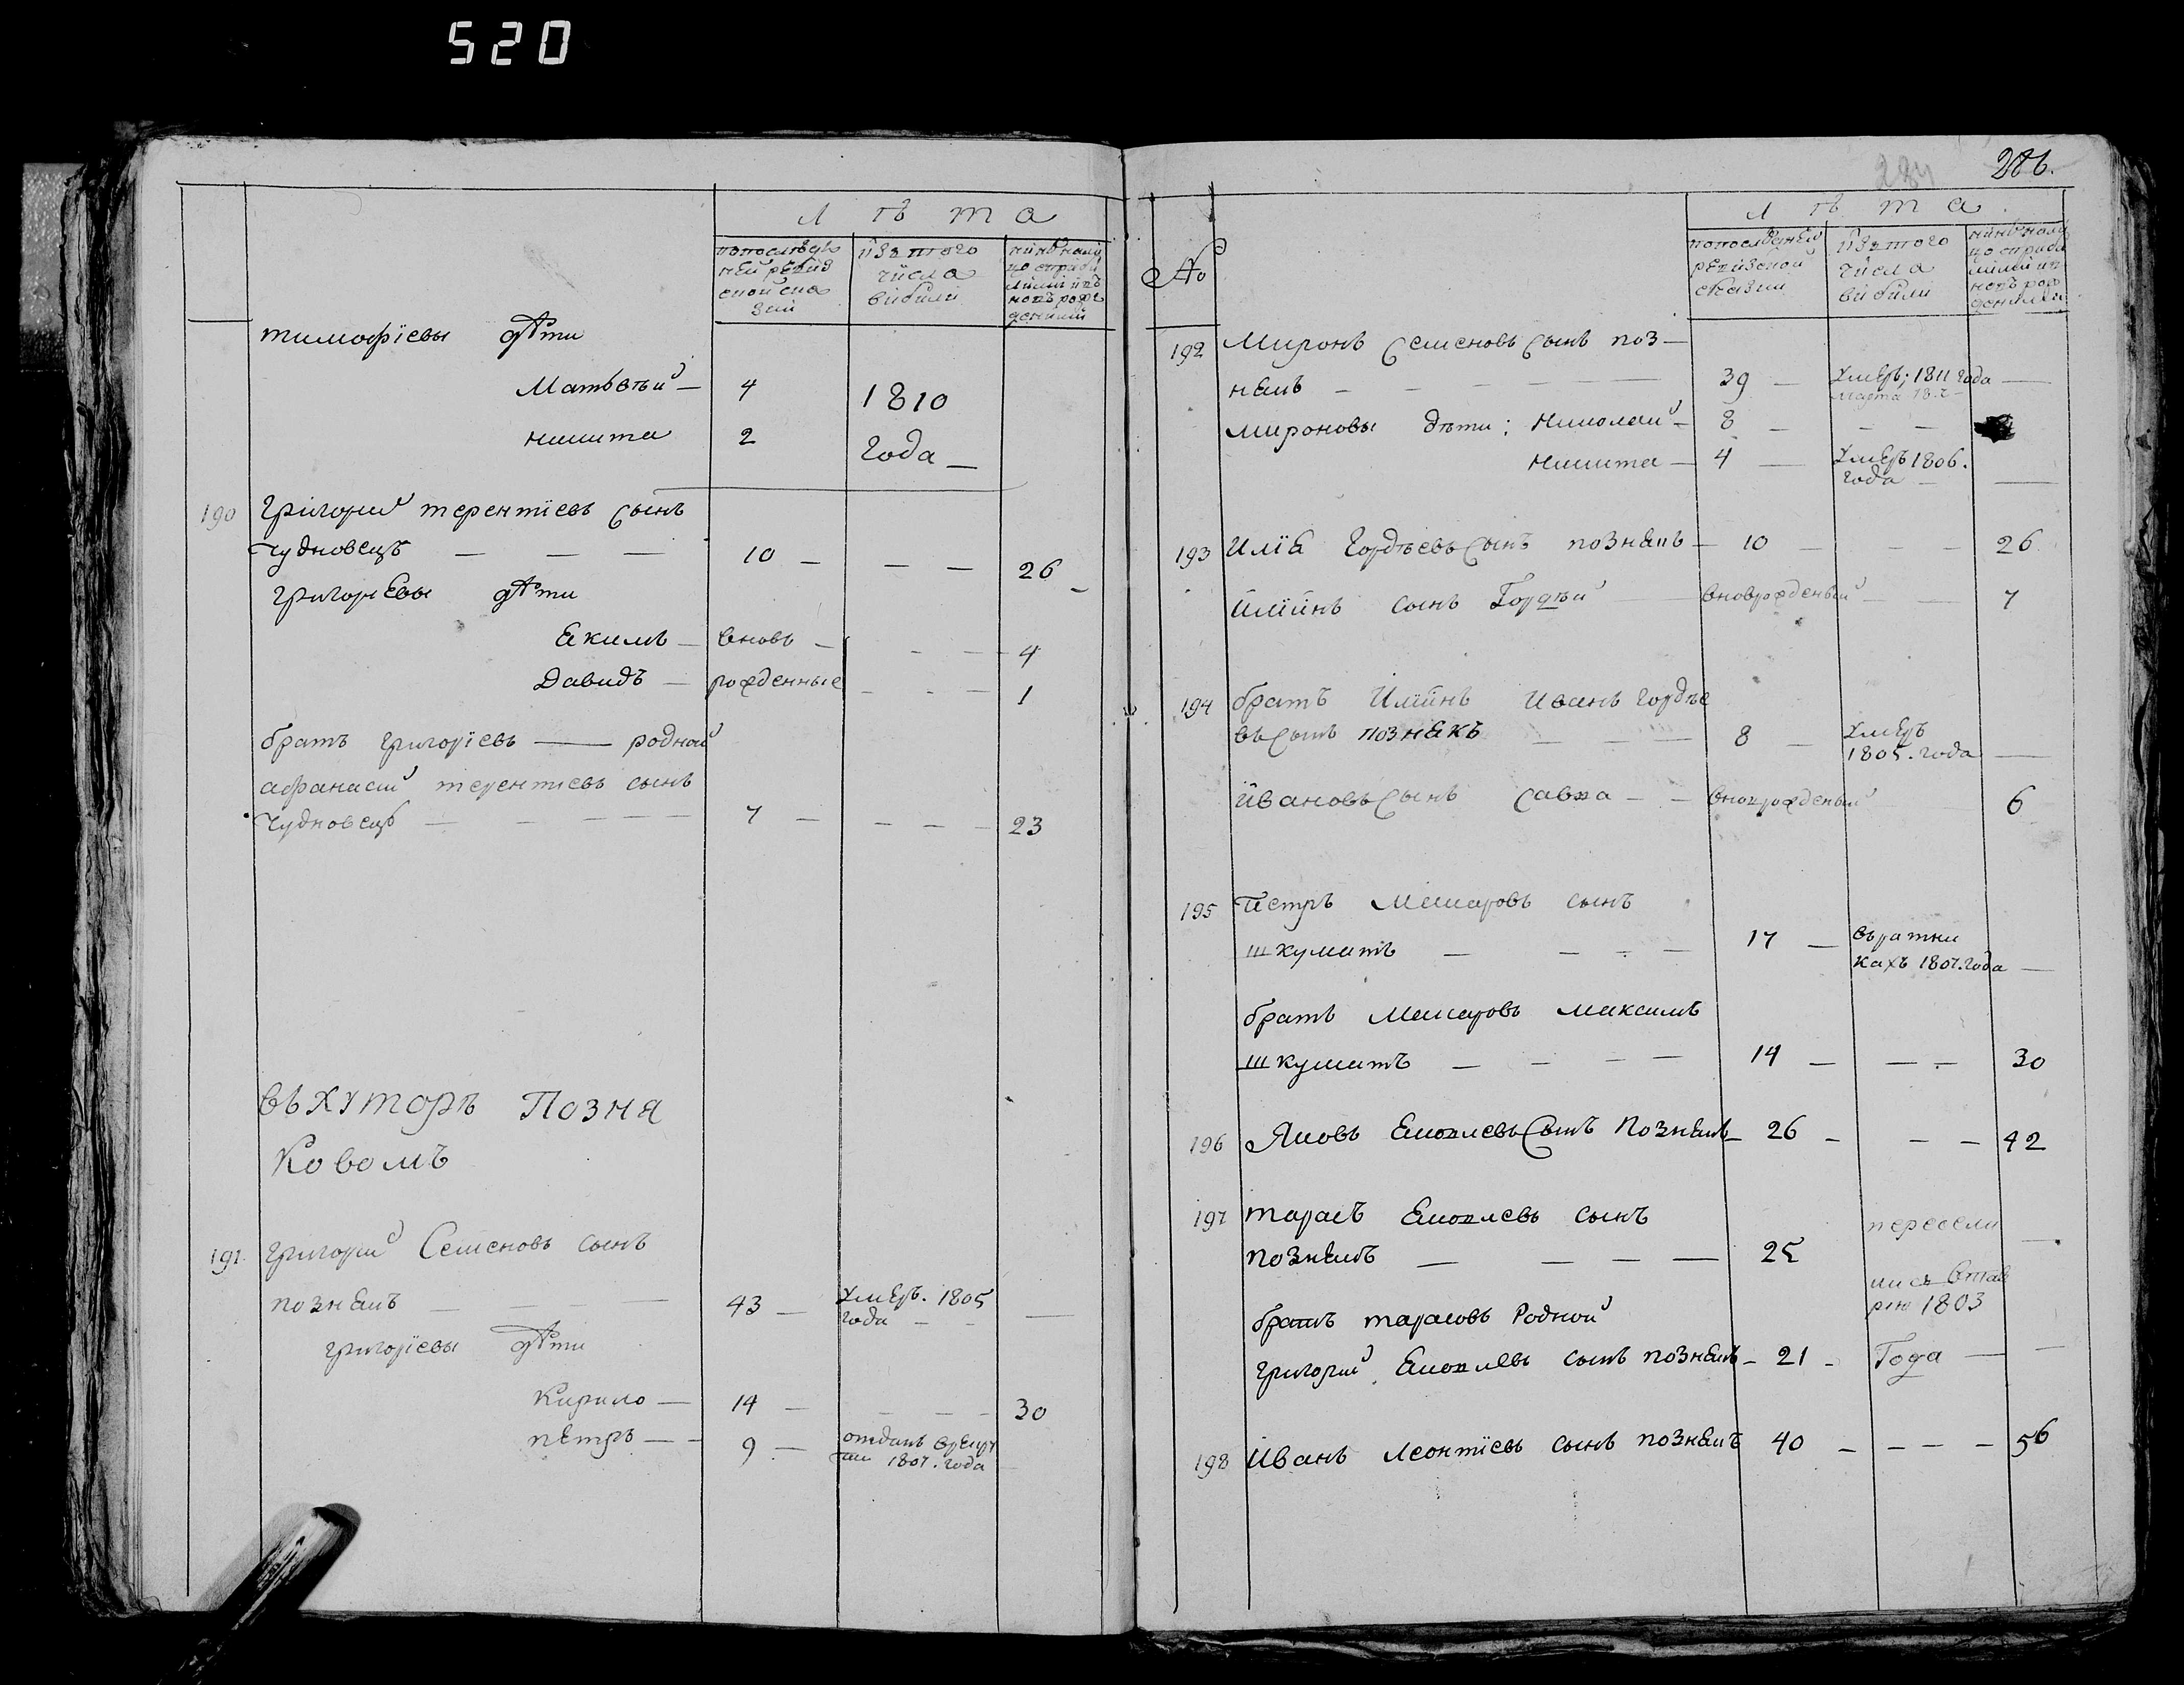 520
Л ѣ т а
попослѣдь
ней ревиз
ской ска
зки
изъ того
числа
вибили
нинѣ нали
цо
тимофіевы дѣти
Матвѣй — 4 1810
никита 2 года —
190 григорий терентіевъ сынъ
чудновецъ — — — 10 — — — 26 —
григориевы дѣти
Якимъ — вновь — - — 4
Давидъ — рожденные - - — 1
братъ григоріевъ — родной
афанасий терентіевъ сынъ
чудновецъ — - — — — 7 — — — — 23
въ хуторѣ Позня
ковомъ
191. григорий Семеновъ сынъ
познякъ — — — 43 — умеръ. 1805
года — - —
григоріевы дѣти
Кирило — 14 — — — - 30
петръ — - 9 — отданъ врекру
ти 1807. года
284 286.
Л ѣ т а
№
попослѣдней
ревизской
сказки
изъ того
числа
вибили
нинѣ нали
цо
192 Миронъ Семеновъ сынъ поз—
някъ - - - — — 39 — умеръ; 1811 года —
марта 18.
мироновы дѣти; Николай — 8 - - -
никита — 4 — умеръ 1806.
года - —
193 Илія Гордѣевъ сынъ познякъ — 10 - - - 26
Иліинъ сынъ Гордѣй — вноврожденый — - 7
194 братъ Иліинъ Иванъ гордѣе
въ сынъ познякъ — - — 8 — умеръ
1805. года —
Ивановъ сынъ Савка - — вноврожденый 6
195 Петръ Макаровъ сынъ
шкуматъ — — - — 17 — въ ратни
кахъ 1807. года —
братъ Макаровъ Максимъ
шкуматъ — - - — 14 — — - 30
196 Яковъ Яковлевъ Сынъ познякъ — 26 - - — 42
197 тарасъ Яковлевъ сынъ пересели
познякъ — — — — 25 —
лись втав
рію 1803
братъ тарасовъ Родной
григорий Яковлевъ сынъ познякъ — 21 - Года — —
198 Иванъ Леонтіевъ сынъ познякъ 40 — — — — 56